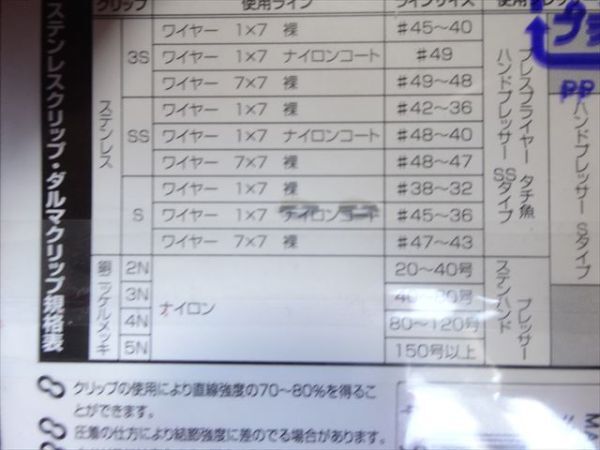 ステンレスクリップ・ダルマクリップ規格表
クリップ 使用ライン ラインサイズ
ステンレス
3S ワイヤー 1×7 裸 #45〜40
ワイヤー 1×7 ナイロンコート #49
ワイヤー 7×7 裸 #49〜48
SS ワイヤー 1×7 裸 #42〜36
ワイヤー 1×7 ナイロンコート #48〜40
ワイヤー 7×7 裸 #48〜47
S ワイヤー 1×7 裸 #38〜32
ワイヤー 1×7 ナイロンコート #45〜36
ワイヤー 7×7 裸 #47〜43
プレスプライヤー タチ魚
ハンドプレッサー SSタイプ
ハンドプレッサー Sタイプ
2N ナイロン 20〜40号
3N
4N 80〜120号
5N 150号以上
プレッサー
ステンハンド
プラ
PP
クリップの使用により直線強度の70〜80%を得るこ
とができます。
圧着の仕方により結節強度に差のでる場合があります。
MA